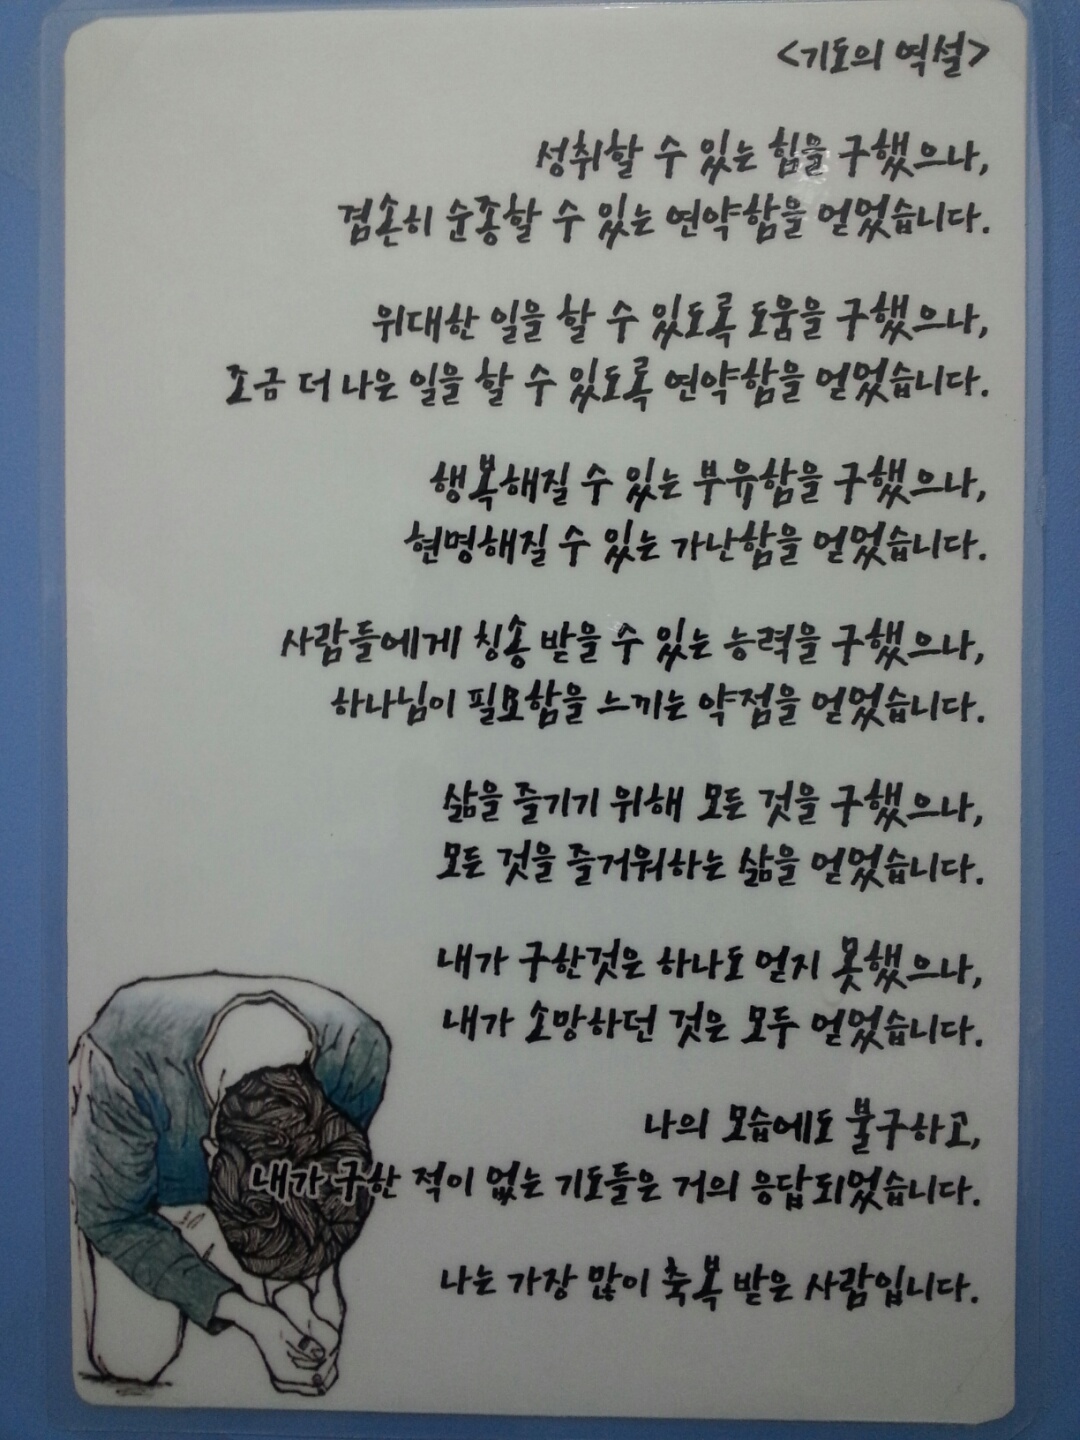 <기도의 역설>
성취할 수 있는 힘을 구했으나,
겸손히 순종할 수 있는 연약함을 얻었습니다.
위대한 일을 할 수 있도록 도움을 구했으나,
조금 더 나은 일을 할 수 있도록 연약함을 얻었습니다.
행복해질 수 있는 부유함을 구했으나,
현명해질 수 있는 가난함을 얻었습니다.
사람들에게 칭송 받을 수 있는 능력을 구했으나,
하나님이 필요함을 느끼는 약점을 얻었습니다.
삶을 즐기기 위해 모든 것을 구했으나,
모든 것을 즐거워하는 삶을 얻었습니다.
내가 구한것은 하나도 얻지 못했으나,
내가 소망하던 것은 모두 얻었습니다.
나의 모습에도 불구하고,
내가 구한 적이 없는 기도들은 거의 응답되었습니다.
나는 가장 많이 축복 받은 사람입니다.